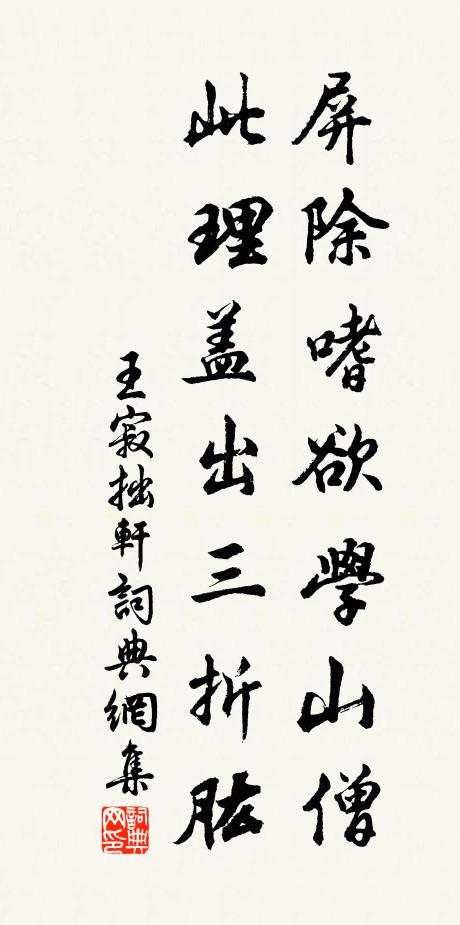 屏除嗜欲學山僧
此理盖出三折肱
王寂拙軒詞典網集
詞典網印